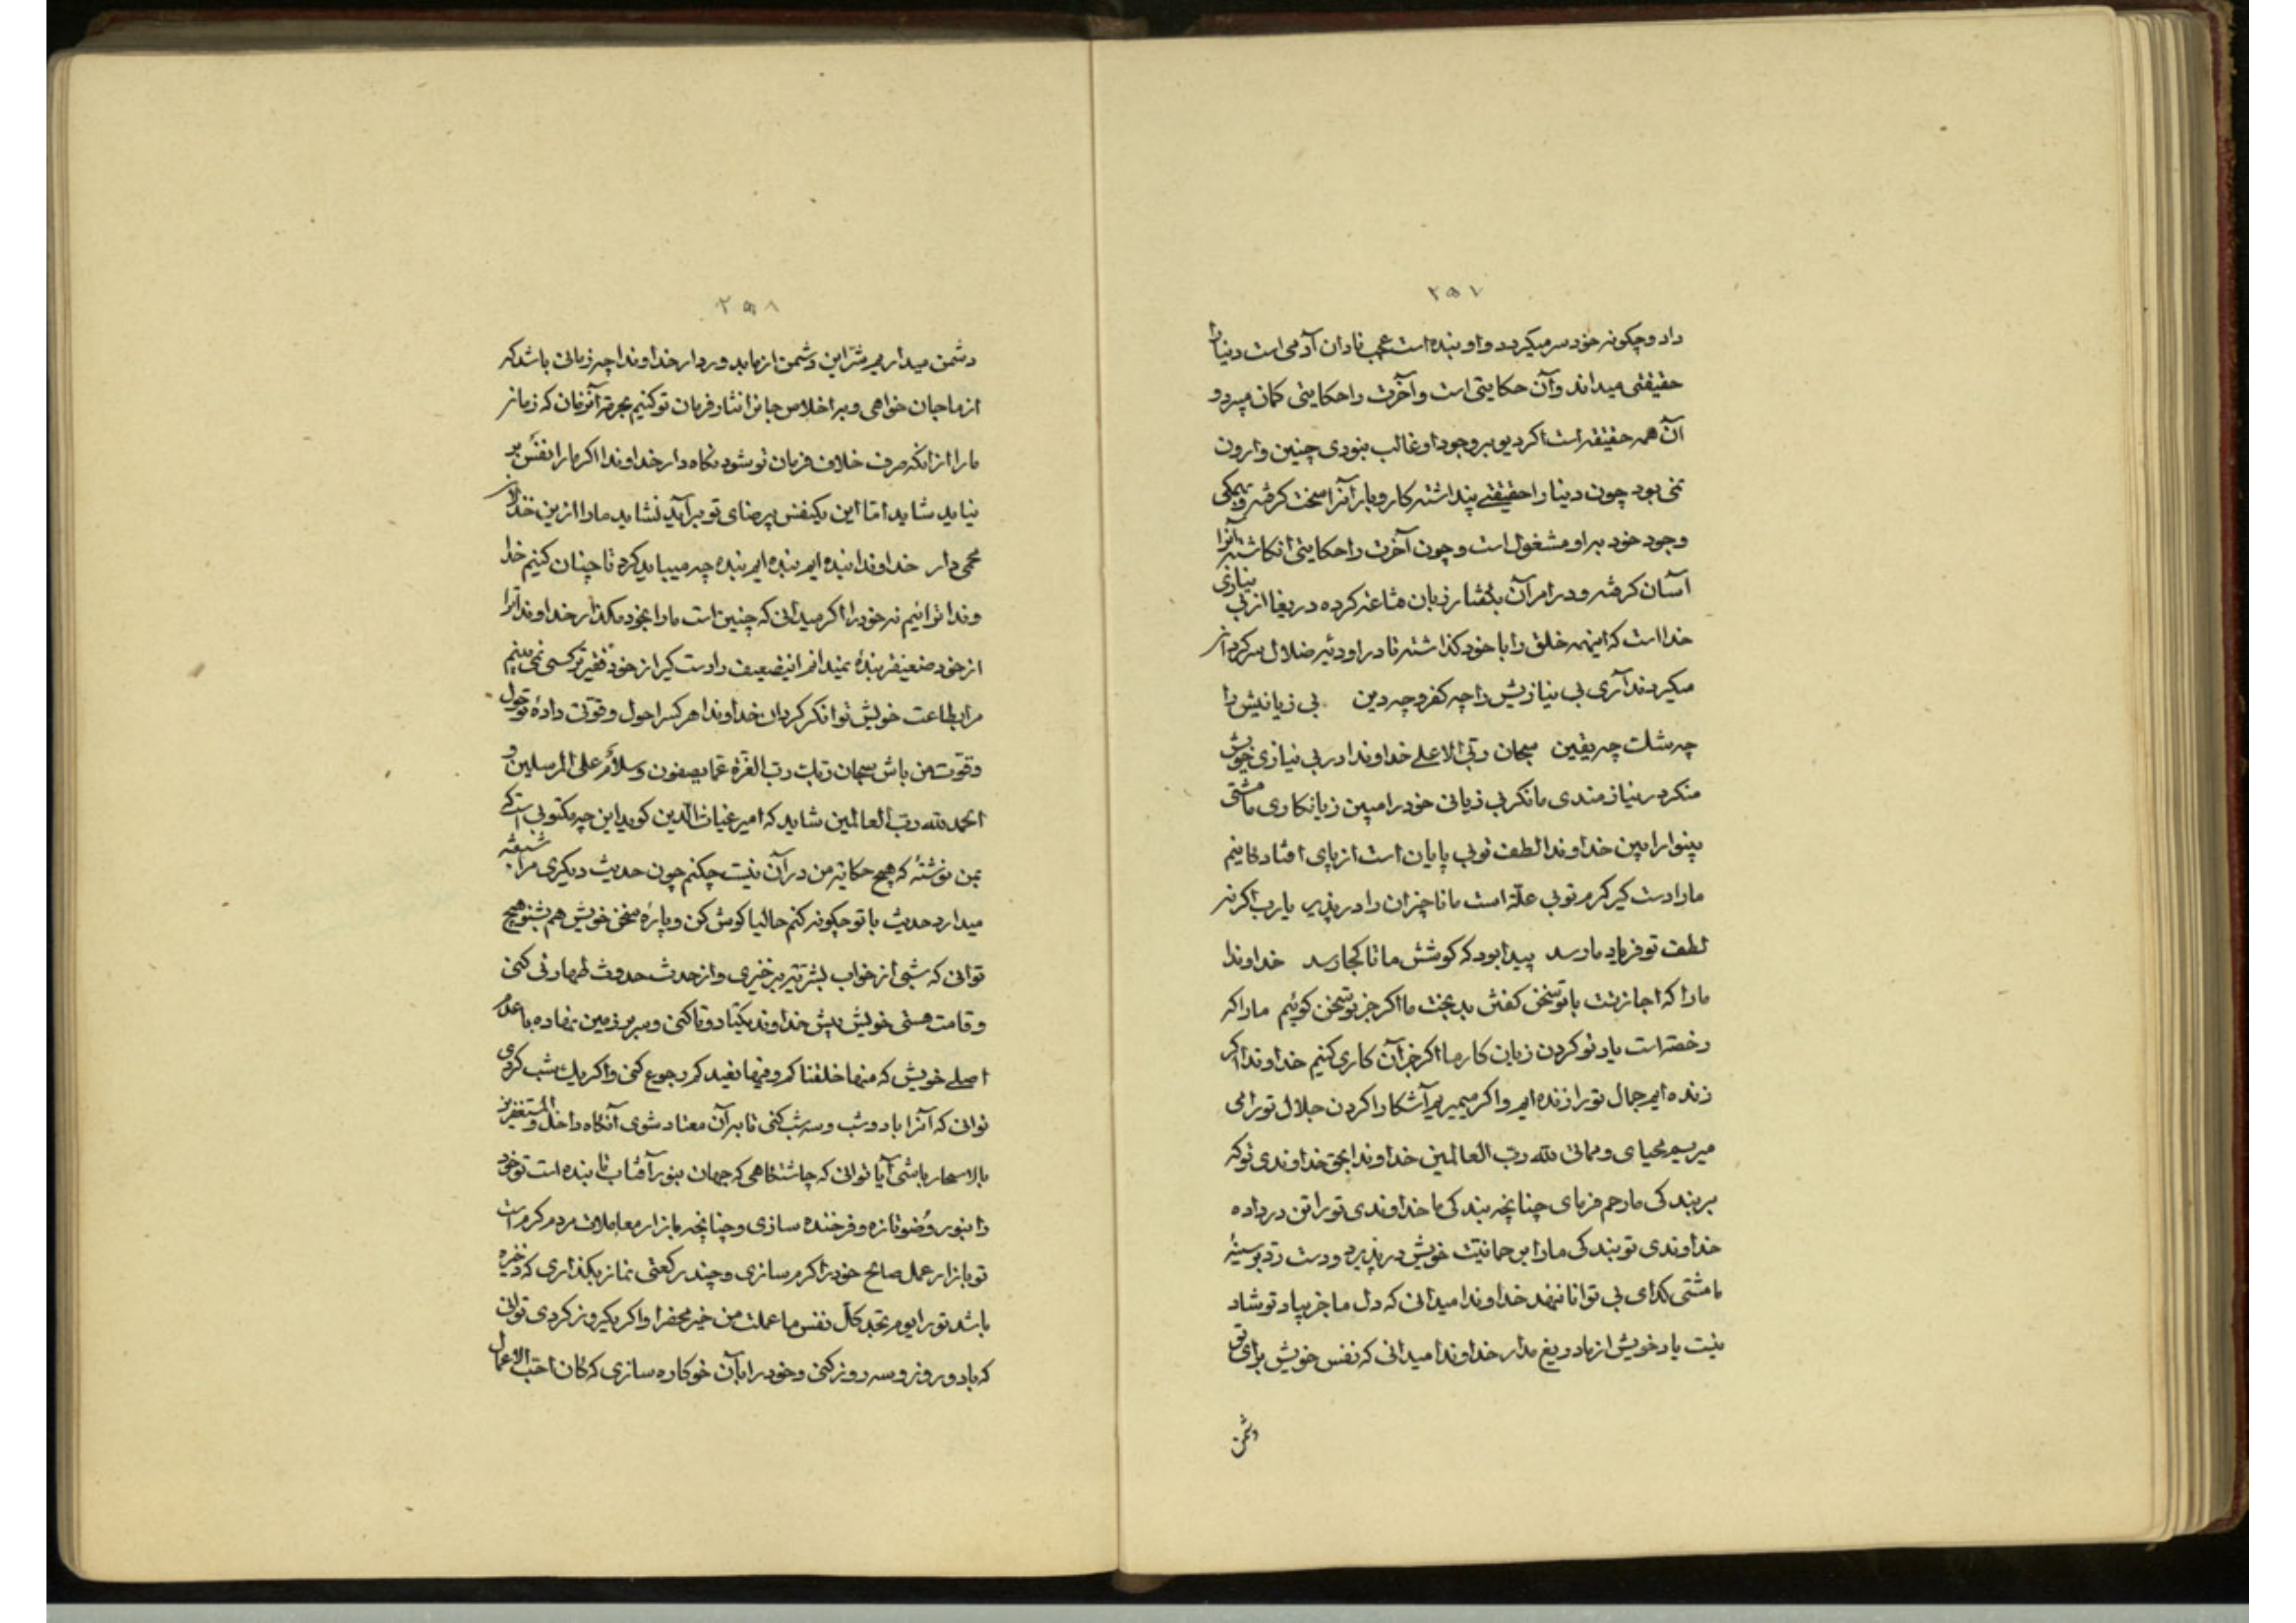 ۲۵۷
داد و چکونه خود سر میکردد و او بنده است عجب نادان آدمی است دنیا را
حقیقتی میداند و آن حکایتی است و آخرت را حکایتی کمان میبرد و
آن همه حقیقة است اکر دیو بر وجود او غالب نبودی چنین وارون
نمی بود چون دنیا را حقیقتے پنداشته کار و بار آنرا سخت کرفته و بهمکی
وجود خود براو مشغول است و چون آخرت را حکایتی انکاشته آنرا
آسان کرفته و در امر آن بکفتار زبان قناعة کرده دریغا از بی نیازی
خدا است که اینهمه خلق را با خود کذاشته تا در اودیه ضلال سرکردان
میکردند آری بی نیازیش را چه کفر و چه دین بی زبانیش را
چه شک چه یقین سبحان ربی الاعلے خداوندا در بی نیازی خویش
منکر در نیازمندی ما نکر بی زیانی خود را مبین زیانکاری ما مشتی
بینوا را ببین خداوندا لطف تو بی پایان است از پای افتادکانیم
ما را دست کیر کرم تو بی علّة است ما ناچیزان را در پذیر یا رب اکر نه
لطف تو فریاد ما رسد پیدا بود که کوشش ما تا کجا رسد خداوندا
ما را که اجازتست با تو سخن کفتن بدبخت ما اکر جز تو سخن کوئیم ما را که
رخصة است یاد تو کردن زیان کار ما اکر جز آن کاری کنیم خداوندا اکر
زنده ایم جمال تو را زنده ایم و اکر میمیریم آشکارا کردن جلال تو را می
میریم محیای و مماتی لله رب العالمین خداوندا بحق خداوندی تو که
بر بندکی ما رحم فرمای چنانچه بندکی ما خداوندی تو را تن در داده
خداوندی تو بندکی ما را برحمانیت خویش در پذیرد و دست رد بر سینهٔ
ما مشتی کدای بی توانا ننهد خداوندا میدانی که دل ما جز بیاد تو شاد
نیست یاد خویش از ما دریغ مدار خداوندا میدانی که نفس خویش برای تو
دشمن
۲۵۸
دشمن میداریم شرّ این دشمن از ما بدور دار خداوندا چه زمانی باشد که
از ما جان خواهی و بر اخلاص جانرا نثار فرمان تو کنیم بحرمة آنزمان که زمانه
ما را از انکه صرف خلاف فرمان تو شود نکاه دار خداوندا اکر ما را نفس بر
نیاید شاید امّا این یکنفس بی رضای تو بر آید نشاید ما را از این خذلان
محمی دار خداوندا بنده ایم بنده ایم بنده چه میباید کرد تا چنان کنیم خدا
وندا توانیم نه خود را اکر میدانی که چنین است ما را بخود مکذار خداوندا ترا
از خود ضعیفتر بندهٔ نمیدانم اینضعیف را دست کیر از خود فقیر تر کسی نمی بینم
مرا بطاعت خویش توانکر کردان خداوندا هر کس را حول و قوتی دادهٔ تو حول
و قوّت من باش سبحان ربک رب العزة عمّا یصفون و سلامٌ علی المرسلین و
الحمد لله ربّ العالمین شاید که امیر غیاث الدین کوید این چه مکتوبی است که
بمن نوشتهٔ که هیچ حکایة من در آن نیست چکنم چون حدیث دیکری مرا شیفته
میدارد حدیث با تو چکونه کنم حالیا کوش کن و پارهٔ سخن خویش هم بشنو هیچ
توانی که شبی از خواب بشریّت برخیزی و از حدث حدوث طهارتی کنی
و قامت هستی خویش پیش خداوند یکتا دوتا کنی و سر بر زمین نهاده با عدم
اصلے خویش که منها خلقناکم و فیها نعیدکم رجوع کنی و اکر یک شب کردی
توانی که آنرا با دو شب و سه شب کنی تا بر آن معتاد شوی آنکاه داخل و المستغفرین
بالاسحار باشی آیا توانی که چاشتکاهی که جهان بنور آفتاب تابنده است تو خود
را بنور وُضو تازه و فرخنده سازی و چنانچه بازار معاملات مردم کرم است
تو بازار عمل صالح خود را کرم سازی و چند رکعتی نماز بکذاری که ذخیره
باشد تو را یوم تجد کلّ نفس ما عملت من خیر محضرا و اکر یکروز کردی توانی
که با دو روز و سه روز کنی و خود را بآن خو کاره سازی که کان احبّ الاعمال